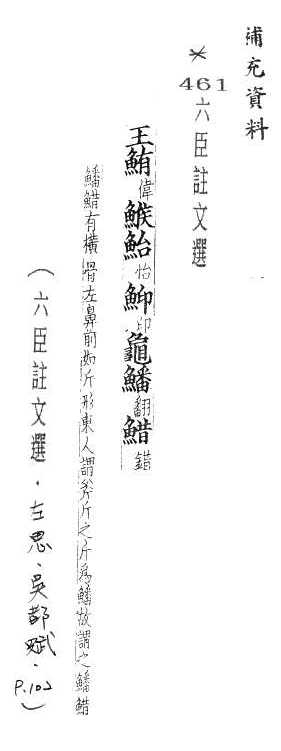 補充資料 一
* 461
六臣註文選
王鮪偉鯸鮐怡䱅印龜鱕翻䱜錯
鱕䱜有橫骨在鼻前如斤形東人謂斧斤之斤為鱕故謂之鱕䱜
(六臣註文選.左思.吳都賦.P.102)